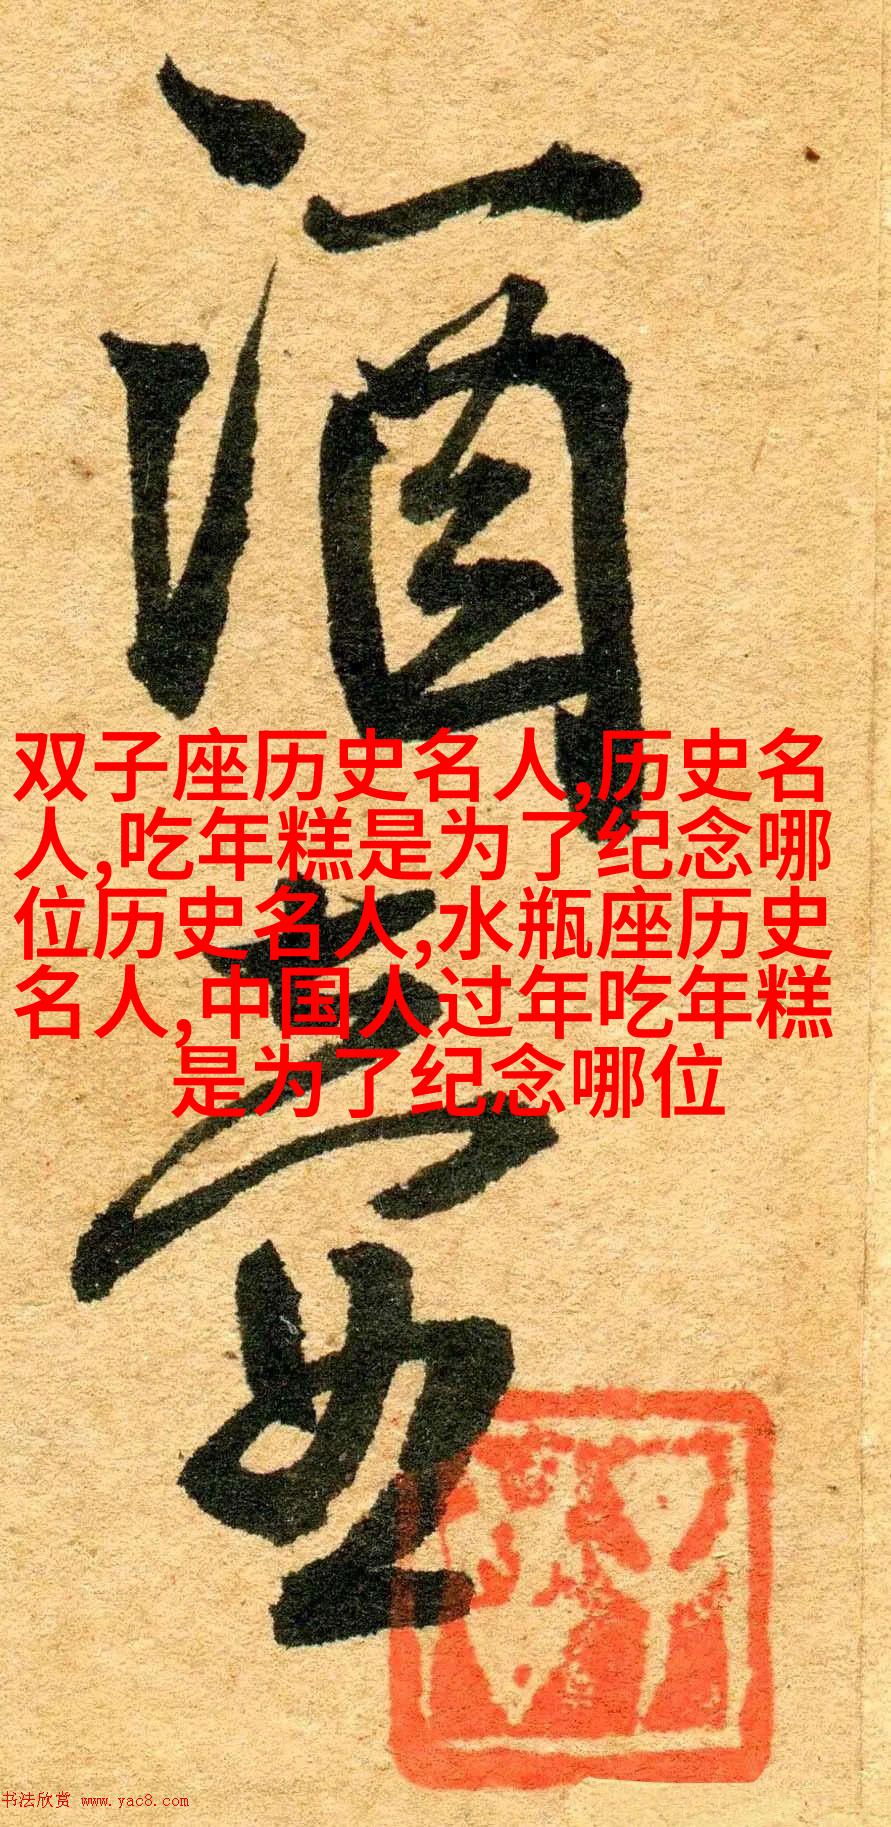 酒
双子座历史名人,历史名
人,吃年糕是为了纪念哪
位历史名人,水瓶座历史
名人,中国人过年吃年糕
是为了纪念哪位
书法欣赏 www.yac8.com